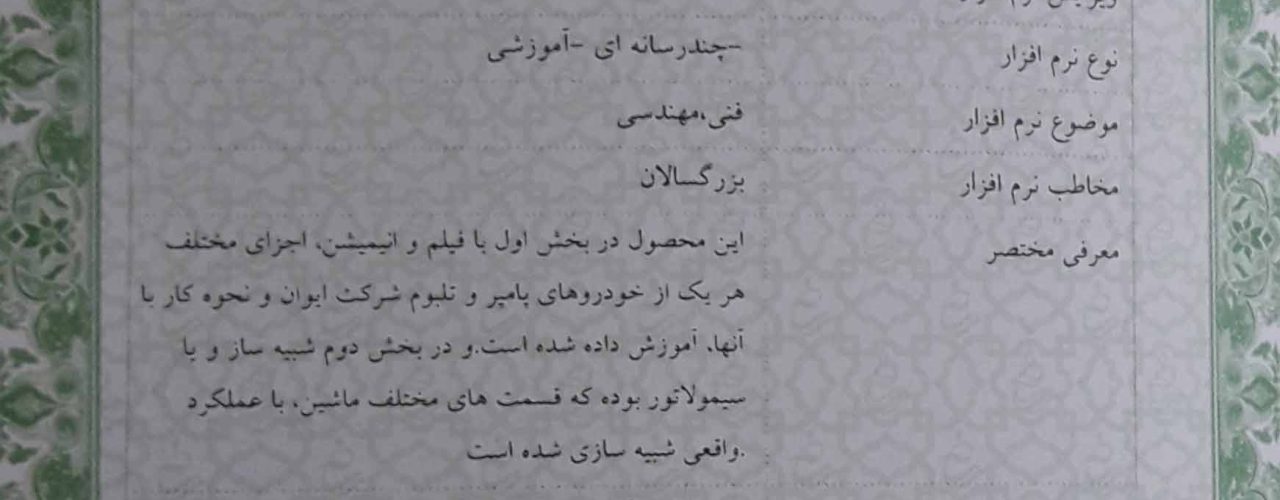 نوع نرم افزار -چندرسانه ای -آموزشی
موضوع نرم افزار فنی،مهندسی
مخاطب نرم افزار بزرگسالان
معرفی مختصر این محصول در بخش اول با فیلم و انیمیشن، اجزای مختلف
هر یک از خودروهای پامپر و تلبوم شرکت ایوان و نحوه کار با
آنها، آموزش داده شده است.و در بخش دوم شبیه ساز و یا
سیمولاتور بوده که قسمت های مختلف ماشین، با عملکرد
.واقعی شبیه سازی شده است